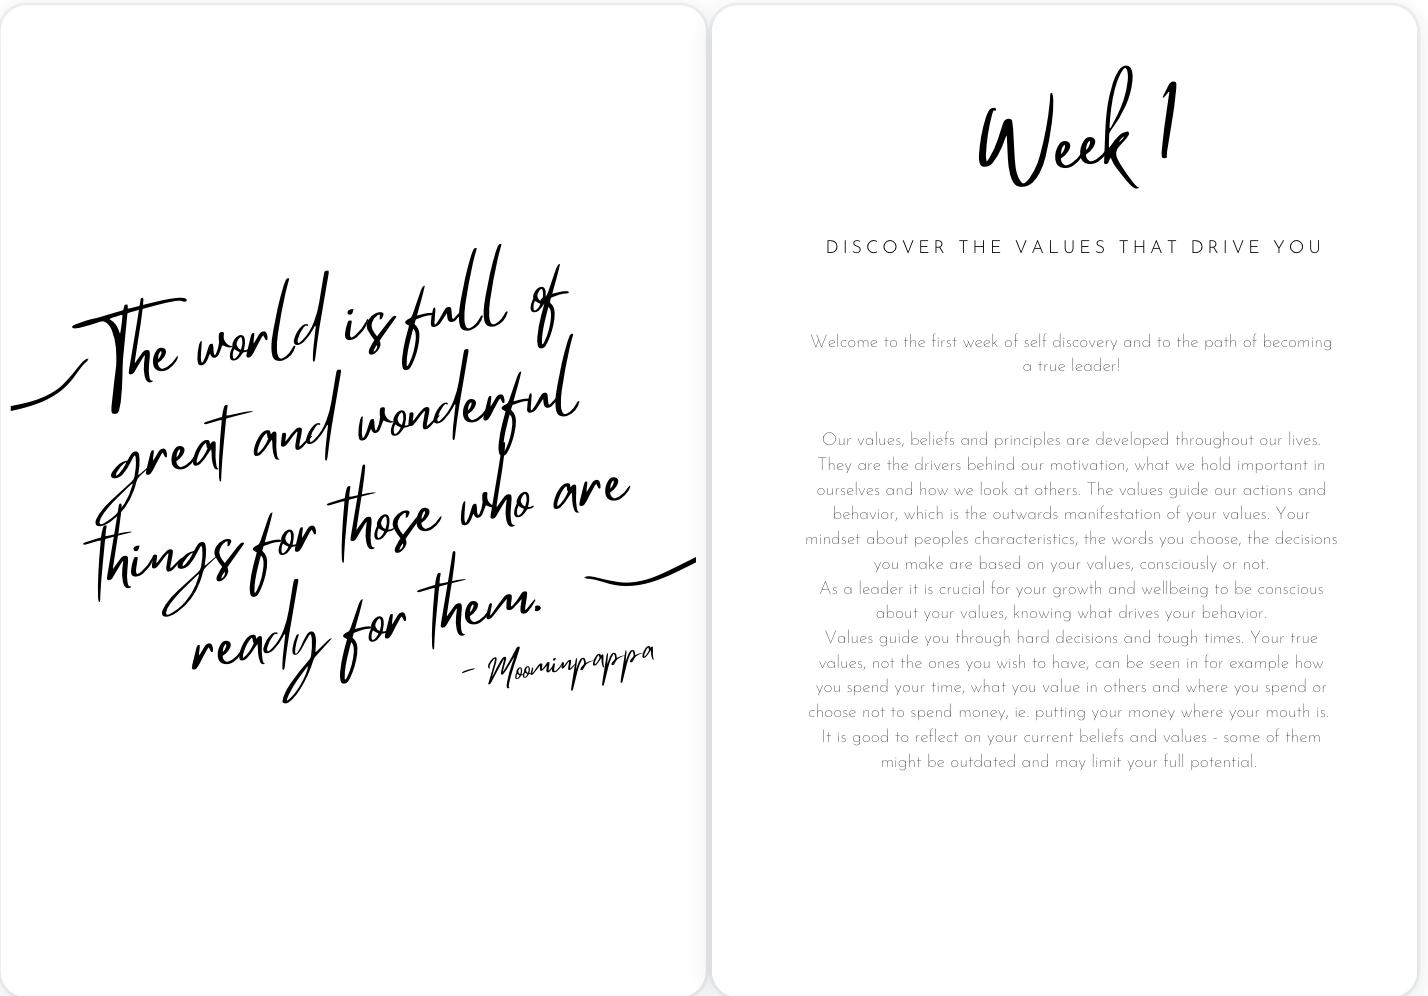 The world is full of
great and wonderful
things for those who are
ready for them.
- Moominpappa
Week 1
DISCOVER THE VALUES THAT DRIVE YOU
Welcome to the first week of self discovery and to the path of becoming
a true leader!
Our values, beliefs and principles are developed throughout our lives.
They are the drivers behind our motivation, what we hold important in
ourselves and how we look at others. The values guide our actions and
behavior, which is the outwards manifestation of your values. Your
mindset about peoples characteristics, the words you choose, the decisions
you make are based on your values, consciously or not.
As a leader it is crucial for your growth and wellbeing to be conscious
about your values, knowing what drives your behavior.
Values guide you through hard decisions and tough times. Your true
values, not the ones you wish to have, can be seen in for example how
you spend your time, what you value in others and where you spend or
choose not to spend money, ie. putting your money where your mouth is.
It is good to reflect on your current beliefs and values - some of them
might be outdated and may limit your full potential.